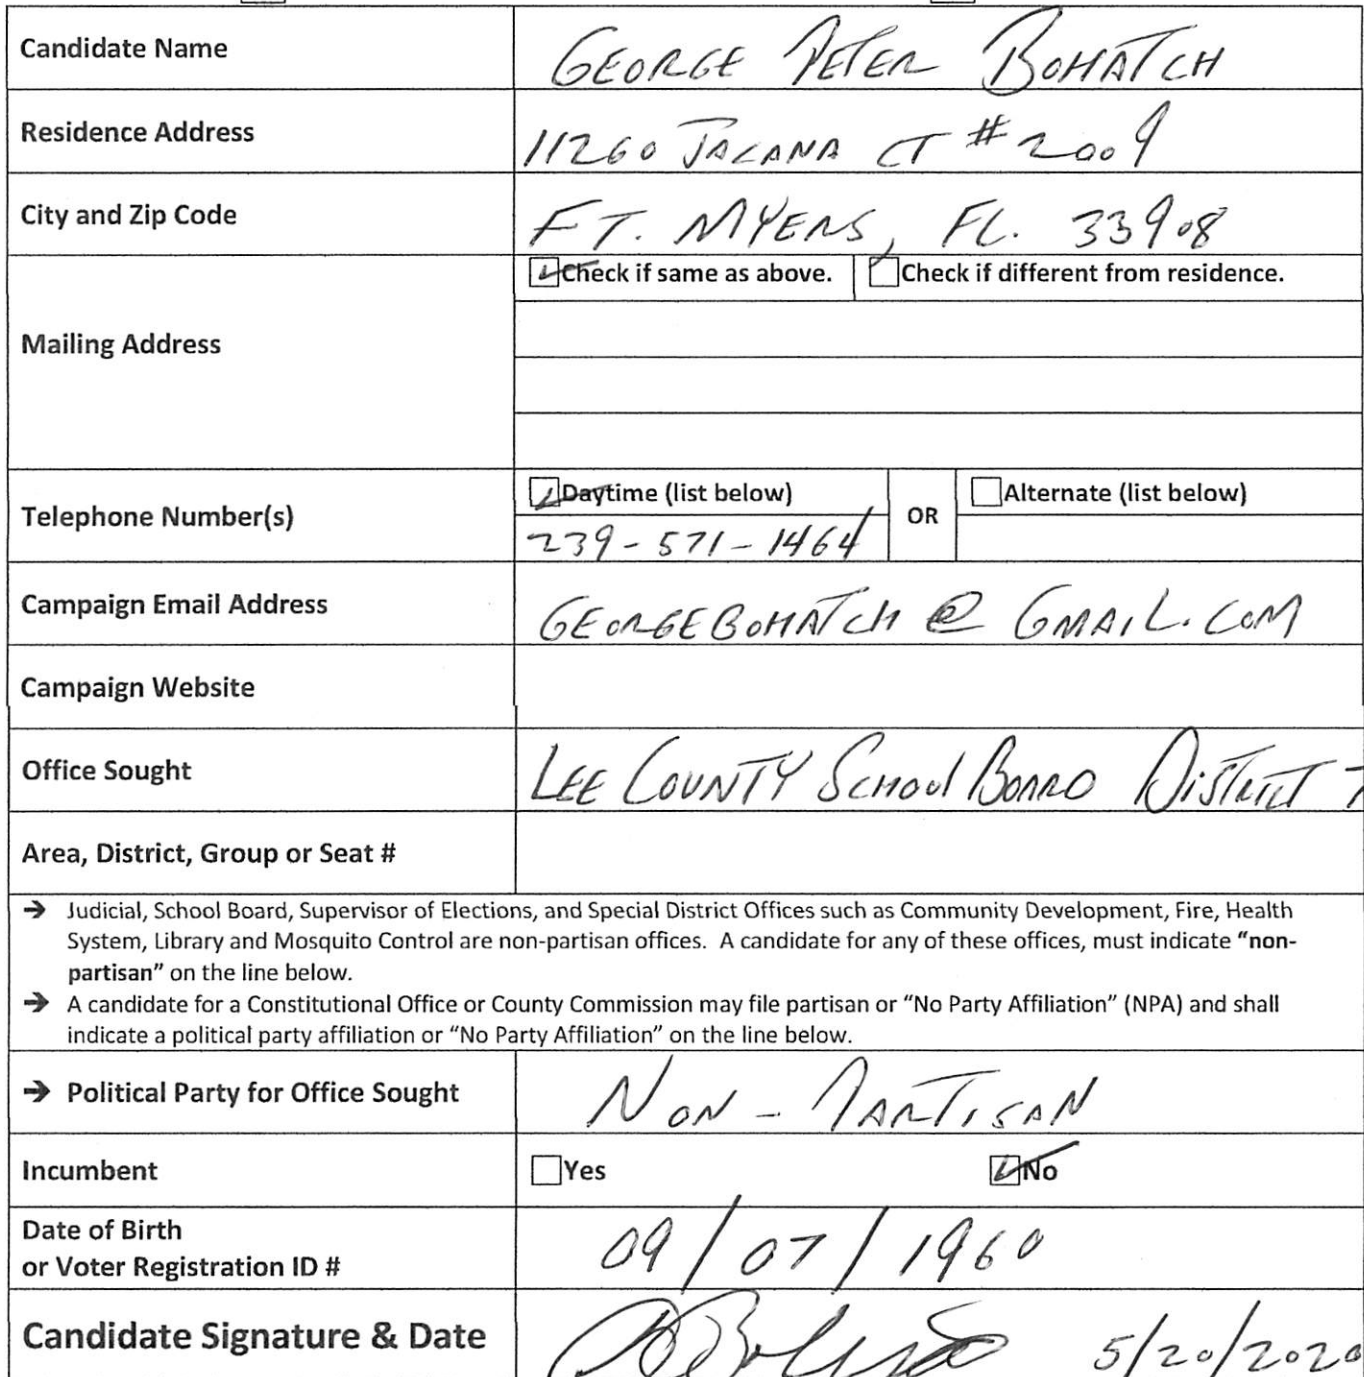 Candidate Name GEORGE PETER BOHATCH
Residence Address 11260 JACANA CT # 2009
City and Zip Code FT. MYERS, FL. 33908
Check if same as above. Check if different from residence.
Mailing Address
Daytime (list below) Alternate (list below)
Telephone Number(s) OR
239-571-1464
Campaign Email Address GEORGEBOHATCH @ GMAIL.COM
Campaign Website
Office Sought LEE COUNTY SCHOOL BOARD DISTRICT 7
Area, District, Group or Seat #
➔ Judicial, School Board, Supervisor of Elections, and Special District Offices such as Community Development, Fire, Health
System, Library and Mosquito Control are non-partisan offices. A candidate for any of these offices, must indicate "non-
partisan" on the line below.
➔ A candidate for a Constitutional Office or County Commission may file partisan or "No Party Affiliation" (NPA) and shall
indicate a political party affiliation or "No Party Affiliation" on the line below.
➔ Political Party for Office Sought NON-PARTISAN
Incumbent Yes No
Date of Birth
or Voter Registration ID # 09/07/1960
Candidate Signature & Date 5/20/2020